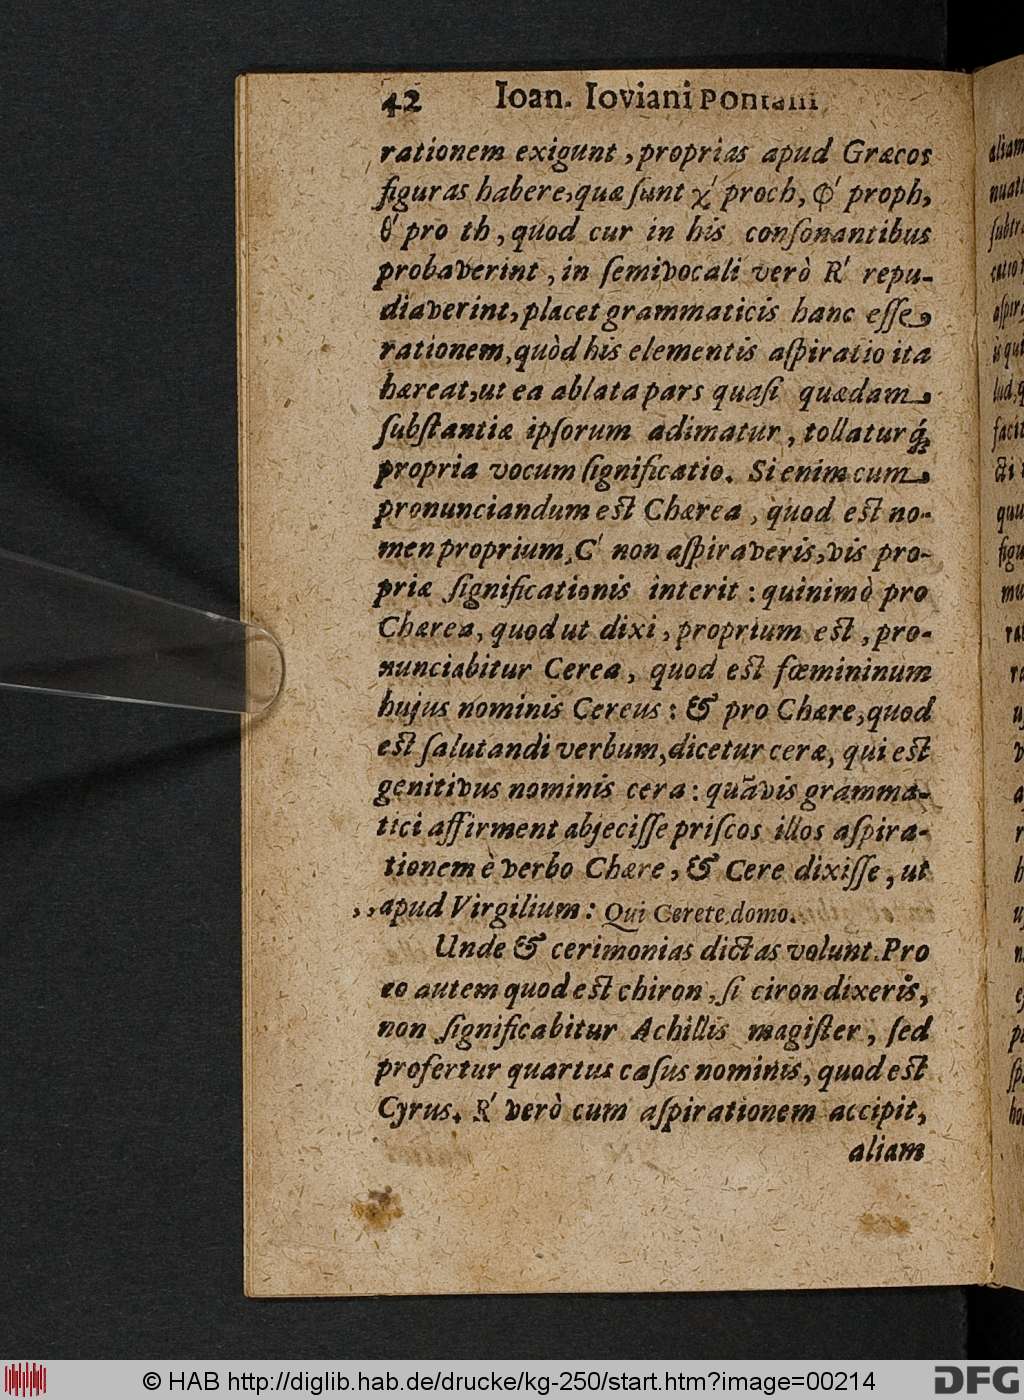 42 Ioan. Ioviani Pontani
rationem exigunt, proprias apud Græcos
figuras habere, quæ ſunt χ' pro ch, Φ' pro ph,
θ' pro th, quod cur in his conſonantibus
probaverint, in ſemivocali verò R' repu-
diaverint, placet grammaticis hanc eſſe
rationem, quòd his elementis aſpiratio ita
hæreat, ut ea ablata pars quaſi quædam
ſubſtantiæ ipſorum adimatur, tollaturq́;
propria vocum ſignificatio. Si enim cum
pronunciandum eſt Chærea, quod eſt no-
men proprium, C' non aſpiraveris, vis pro-
priæ ſignificationis interit: quinimò pro
Chærea, quod ut dixi, proprium eſt, pro-
nunciabitur Cerea, quod eſt fœmininum
hujus nominis Cereus: & pro Chære, quod
eſt ſalutandi verbum, dicetur ceræ, qui eſt
genitivus nominis cera: quãvis gramma-
tici affirment abjeciſſe priſcos illos aſpira-
tionem è verbo Chære, & Cere dixiſſe, ut
,,apud Virgilium: Qui Cerete domo.
Unde & cerimonias dictas volunt. Pro
eo autem quod eſt chiron, ſi ciron dixeris,
non ſignificabitur Achillis magiſter, ſed
profertur quartus caſus nominis, quod eſt
Cyrus. R' verò cum aſpirationem accipit,
aliam
© HAB http://diglib.hab.de/drucke/kg-250/start.htm?image=00214
DFG